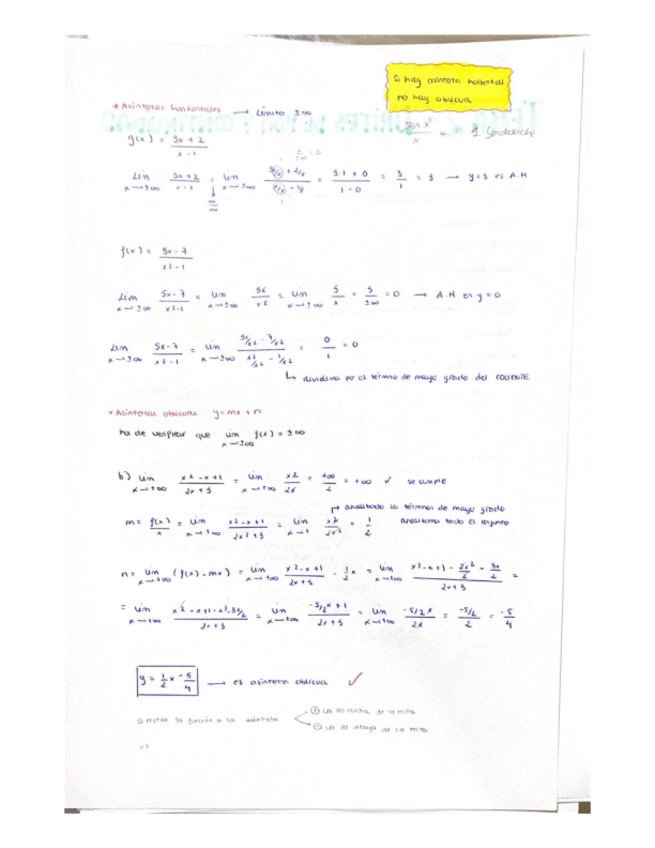 Si hay asíntota horizontal
no hay oblicua
* Asíntotas horizontales → Límite ±∞
sen x / x = 1 Sandwich
g(x) = 3x + 2 / x - 1
Lim x→±∞ 3x+2 / x-1 = Lim x→±∞ 3x/x + 2/x / x/x - 1/x = 3·1 + 0 / 1 - 0 = 3/1 = 3 → y=3 es A.H
∞/∞
f(x) = 5x - 7 / x2 - 1
Lim x→±∞ 5x-7 / x2-1 = Lim x→±∞ 5x / x2 = Lim x→±∞ 5 / x = 5 / ±∞ = 0 → A.H en y=0
Lim x→±∞ 5x-7 / x2-1 = Lim x→±∞ 5x/x2 - 7/x2 / x2/x2 - 1/x2 = 0 / 1 = 0
↳ dividimos por el término de mayor grado del COCIENTE
* Asíntotas oblicuas y=mx+n
ha de verificar que lim x→±∞ f(x) = ±∞
b) Lim x→+∞ x2-x+1 / 2x+3 = Lim x→+∞ x2 / 2x = +∞ / 2 = +∞ ✓ se cumple
analizando los términos de mayor grado
m = f(x) / x = Lim x→+∞ x2-x+1 / 2x2+3 = Lim x→+∞ x2 / 2x2 = 1/2 analizamos todo el conjunto
n = Lim x→+∞ (f(x) - mx) = Lim x→+∞ x2-x+1 / 2x+3 - 1/2 x = Lim x→+∞ x2-x+1 - 2x2/2 - 3x/2 / 2x+3 =
= Lim x→+∞ x2-x+1-x2-3x/2 / 2x+3 = Lim x→+∞ -5/2x+1 / 2x+3 = Lim x→+∞ -5/2x / 2x = -5/2 / 2 = -5/4
y = 1/2 x - 5/4 → es asíntota oblicua ✓
⊕ va por encima de la recta
restar la función a la asíntota
⊖ va por abajo de la recta